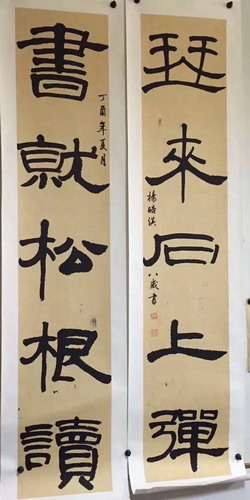 琴來石上彈
楊 八歲書
丁酉年夏月
書就松根讀